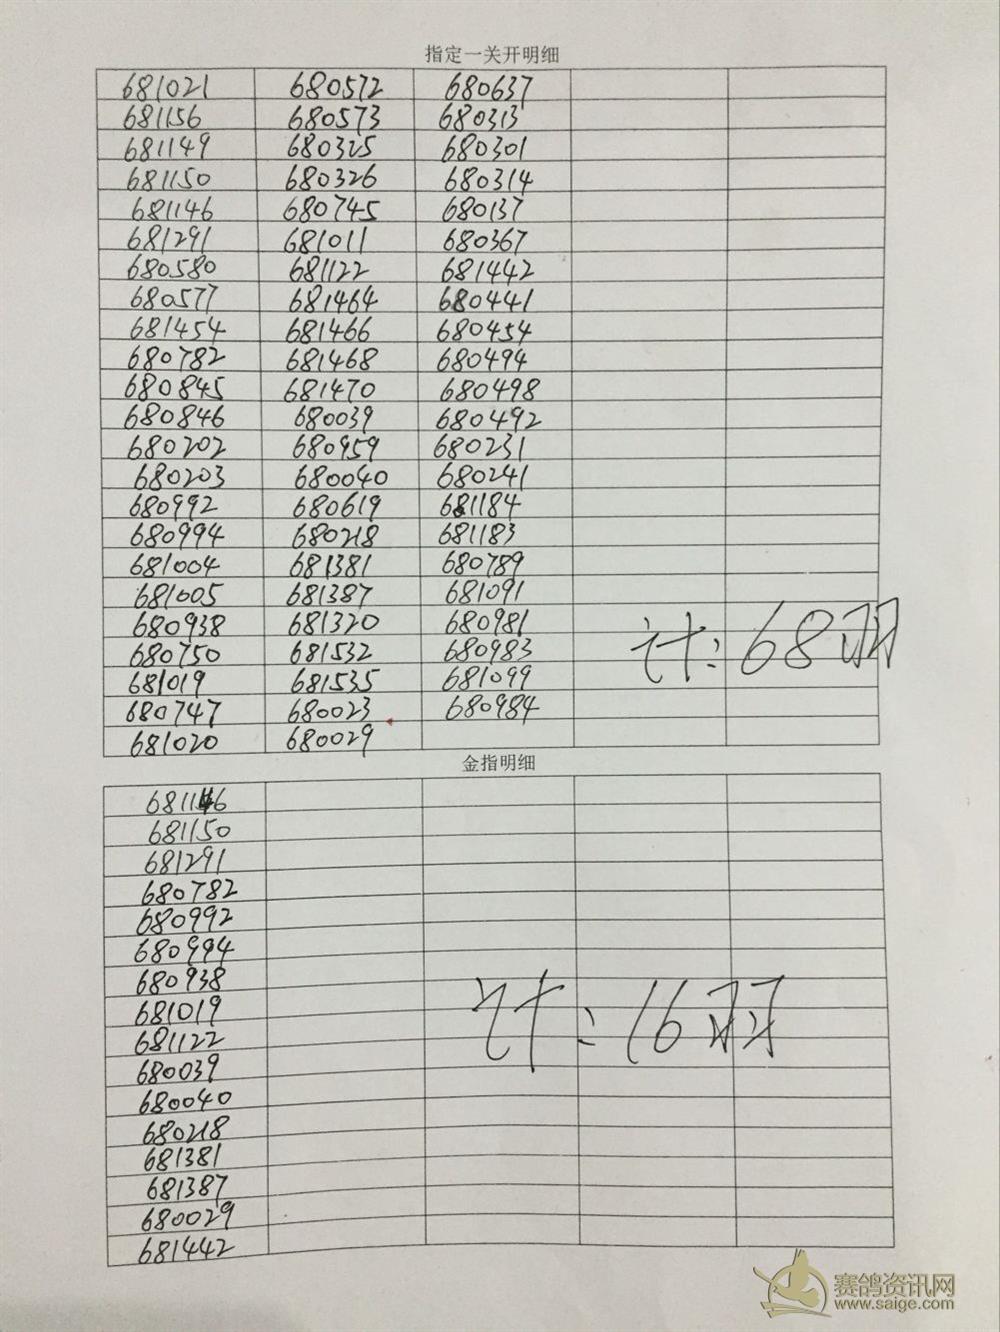 指定一关开明细
681021 680572 680637
681156 680573 680313
681149 680325 680301
681150 680326 680314
681146 680745 680137
681291 681011 680367
680580 681122 681442
680577 681464 680441
681454 681466 680454
680782 681468 680494
680845 681470 680498
680846 680039 680492
680202 680959 680231
680203 680040 680241
680992 680619 681184
680994 680218 681183
681004 681381 680789
681005 681387 681091
680938 681320 680981
680750 681532 680983
681019 681535 681099
680747 680023 680984
681020 680029
计:68羽
金指明细
681146
681150
681291
680782
680992
680994
680938
681019
681122
680039
680040
680218
681381
681387
680029
681442
计:16羽
赛鸽资讯网
www.saige.com